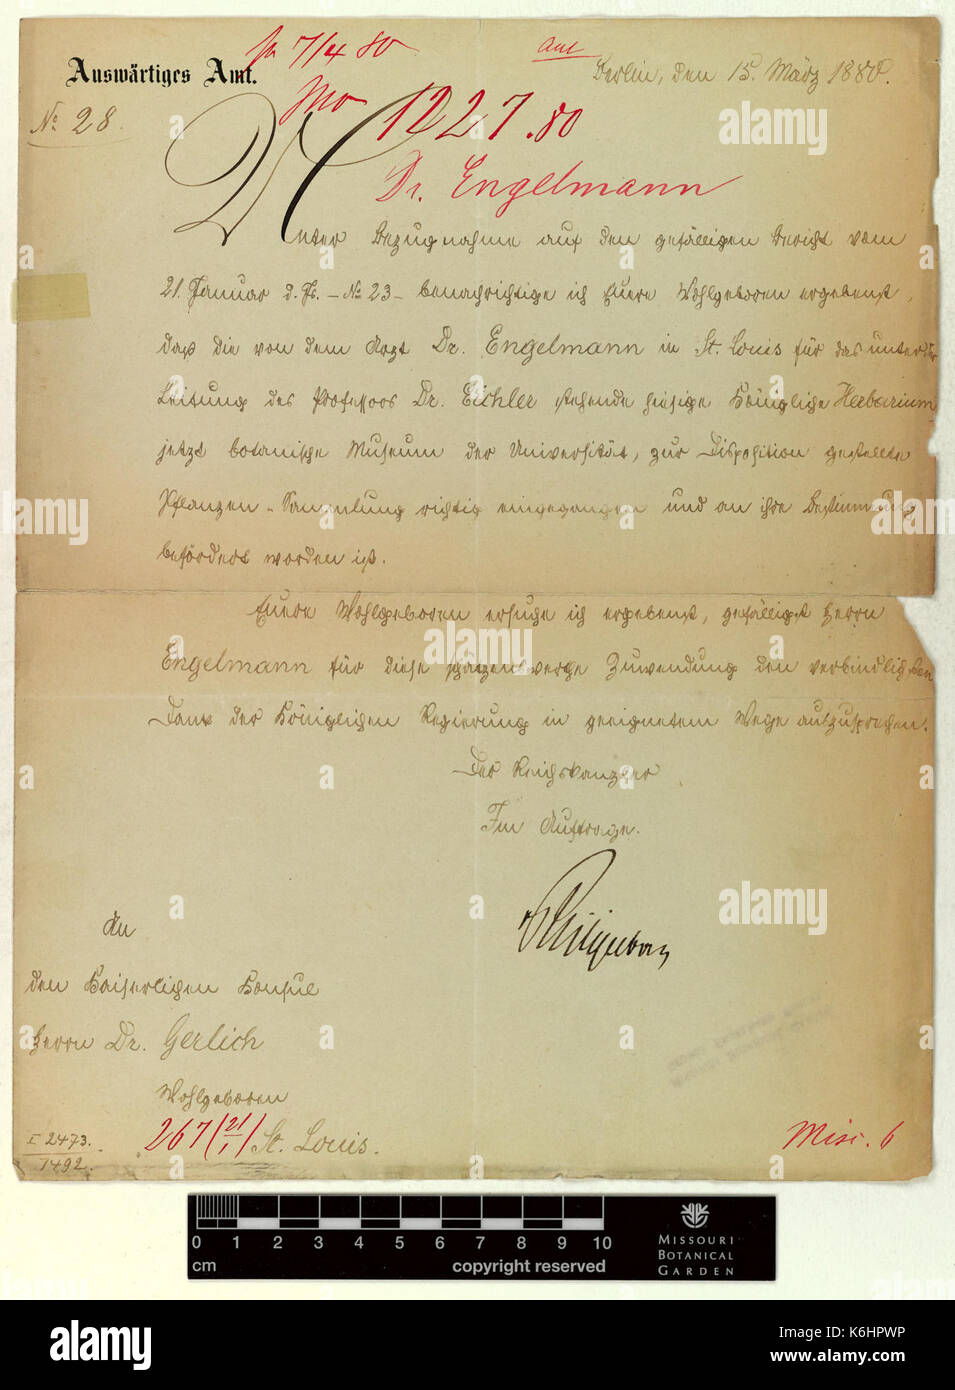 pr 7/4 80
Auswärtiges Amt.
Berlin, den 15. März 1880.
No 28.
1227.80
Dr. Engelmann
Unter Bezugnahme auf den gefälligen Bericht vom
21. Januar d. Js. - No 23 - benachrichtige ich Euere Wohlgeboren ergebenst,
daß die von dem Arzt Dr. Engelmann in St. Louis für das unter der
Leitung des Professors Dr. Eichler stehende hiesige Königliche Herbarium
jetzt botanische Museum der Universität, zur Disposition gestellte
Pflanzen-Sammlung richtig eingegangen und an ihre Bestimmung
befördert worden ist.
Euere Wohlgeboren ersuche ich ergebenst, gefälligst Herrn
Engelmann für diese schätzenswerthe Zuwendung den verbindlichsten
Dank der Königlichen Regierung in geeignetem Wege auszusprechen.
Der Reichskanzler
Im Auftrage.
An
den Kaiserlichen Konsul
Herrn Dr. Gerlich
Wohlgeboren
267 (21/1) St. Louis.
I 2473.
1492.
Misc. 6
0 1 2 3 4 5 6 7 8 9 10
cm
copyright reserved
MISSOURI
BOTANICAL
GARDEN
alamy
Image ID: K6HPWP
www.alamy.com